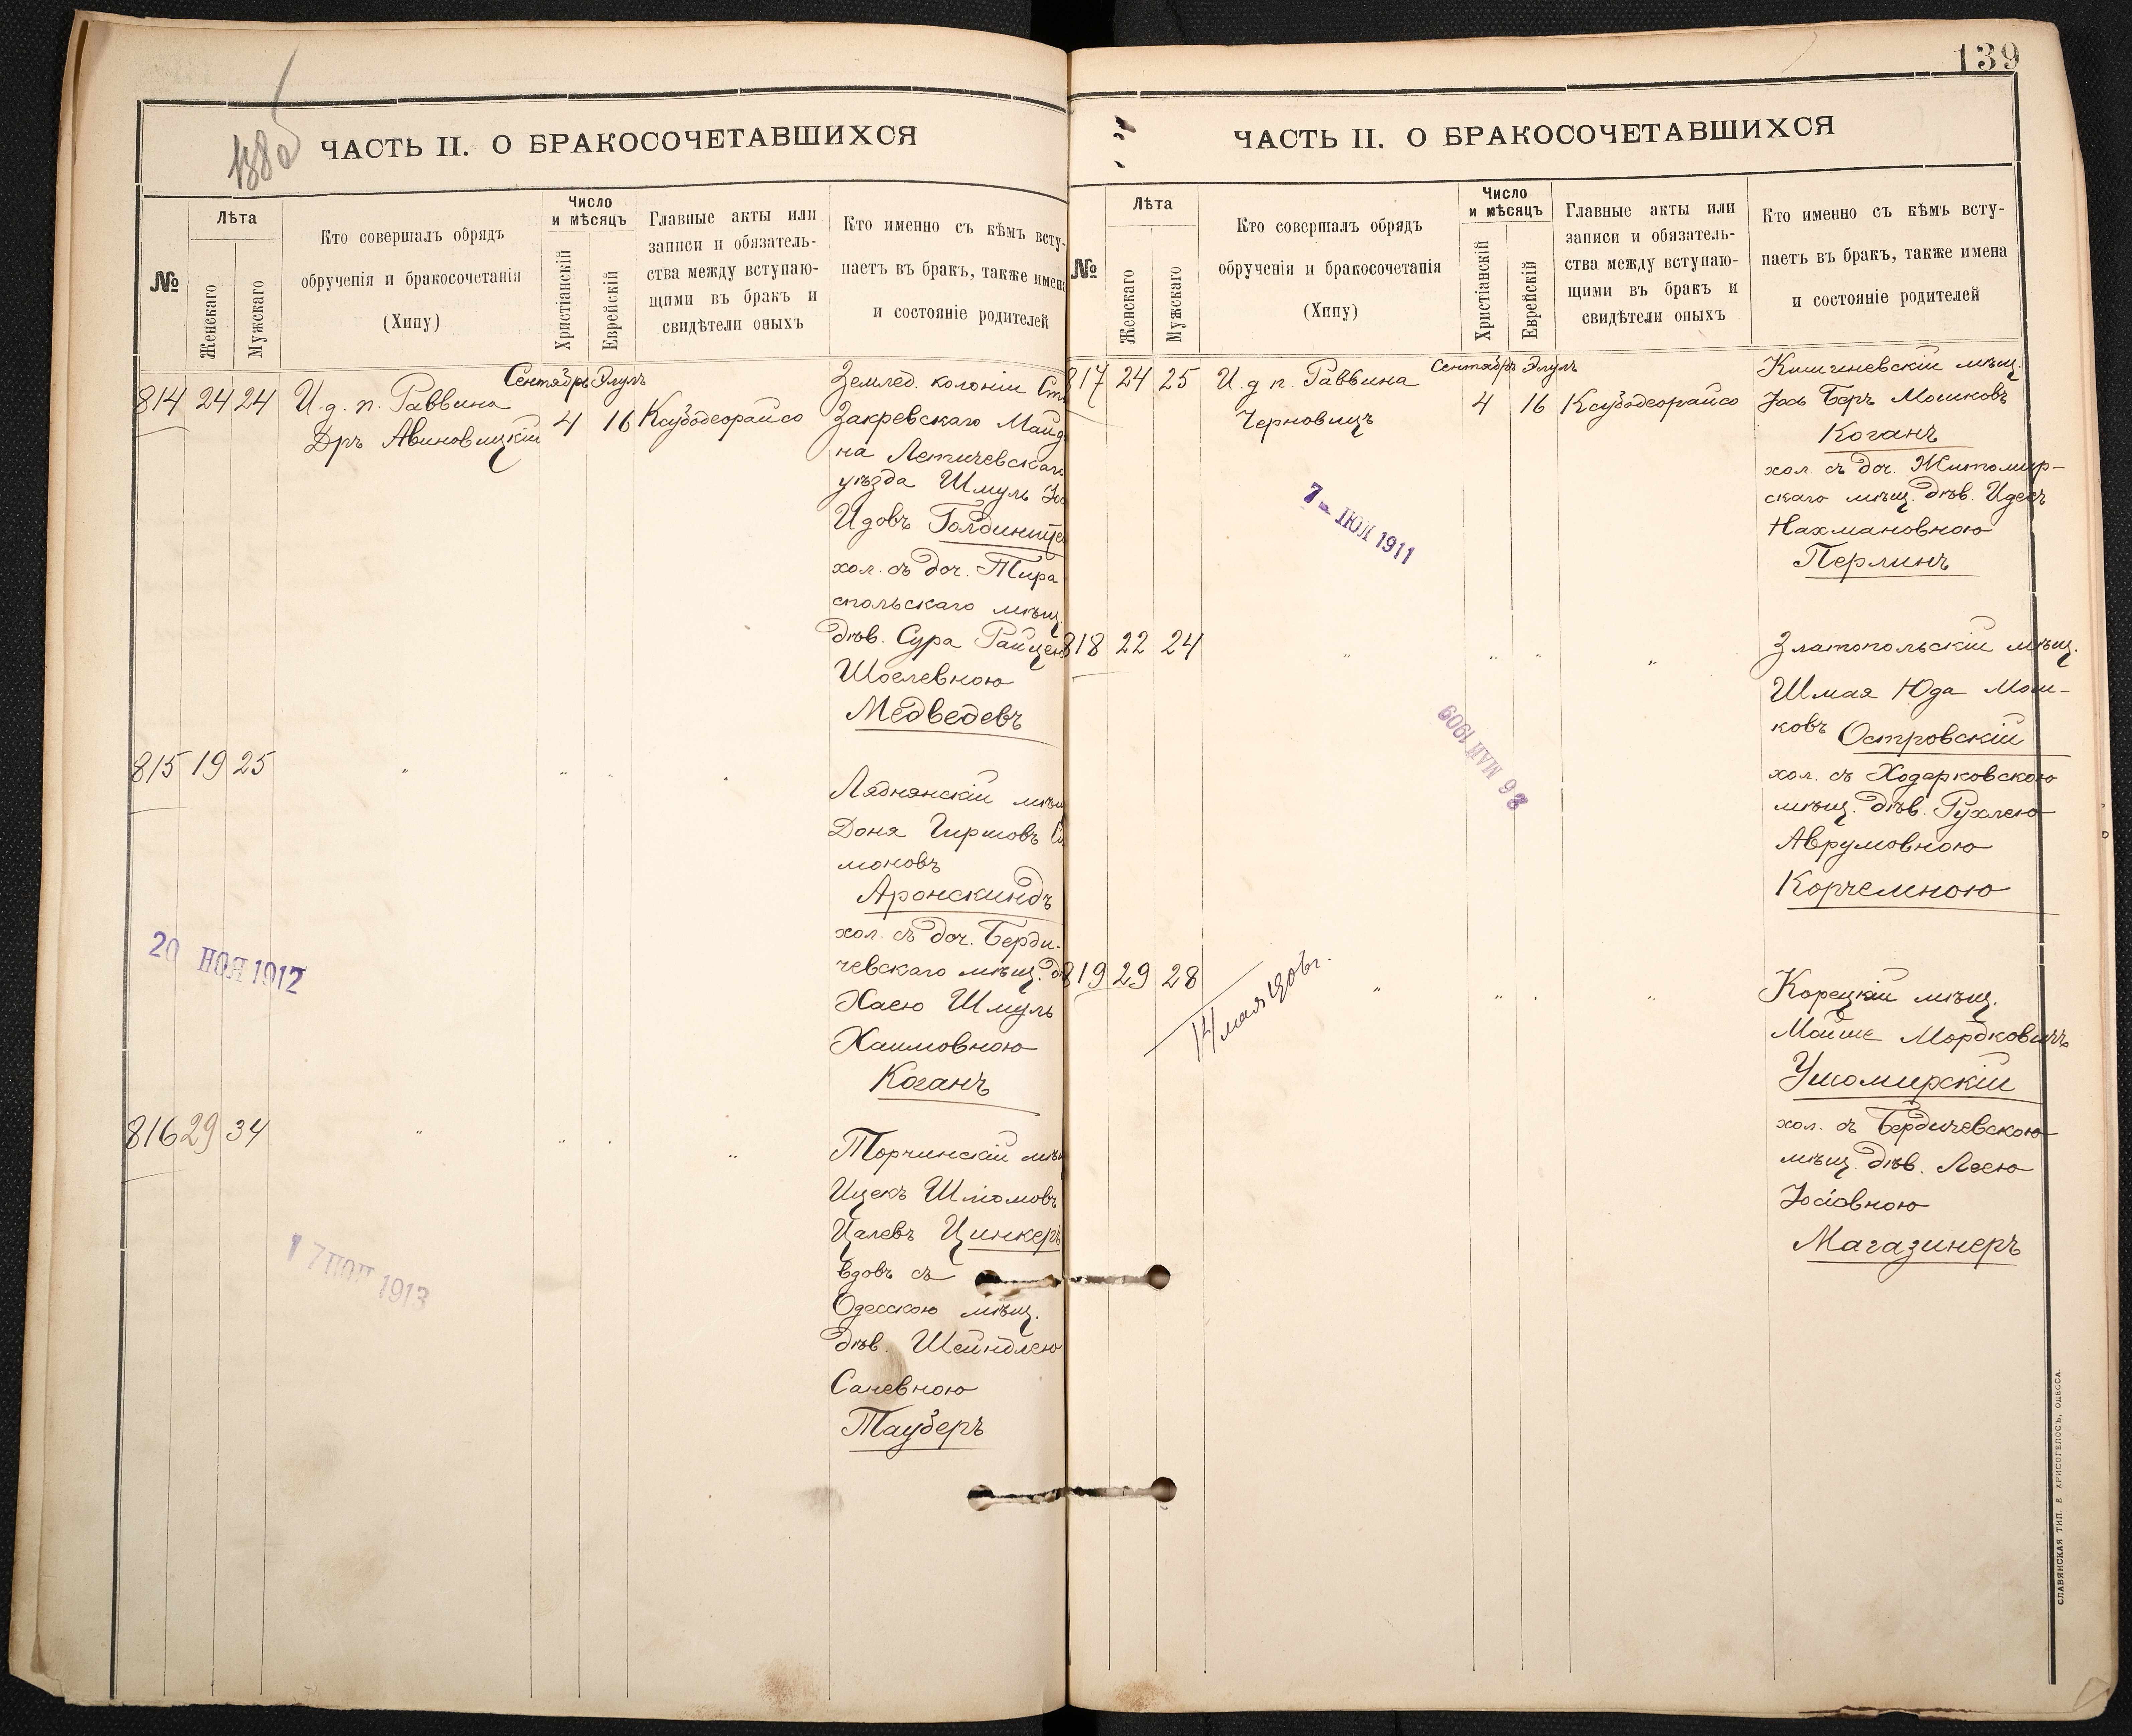 138об
ЧАСТЬ II. О БРАКОСОЧЕТАВШИХСЯ
№
Лѣта
Женскаго
Мужскаго
Кто совершалъ обрядъ
обрученія и бракосочетанія
(Хипу)
Число
и мѣсяцъ
Христіанскій
Еврейскій
Главные акты или
записи и обязатель-
ства между вступаю-
щими въ бракъ и
свидѣтели оныхъ
Кто именно съ кѣмъ всту-
паетъ въ бракъ, также имена
и состояніе родителей
Сентябрь Элулъ
814 24 24 И. д. п. Раввина 4 16 Ксубодеорайсо
Дръ Авиновицкій
Землед. колоніи Ст
Закревскаго Майд
на Летичевскаго
уѣзда Шмуль
Идовъ Голдинште
хол. съ доч. Тира
спольскаго мѣщ.
дѣв. Сура Райцею
Шоелевною
Медведевъ
815 19 25 " " " "
Ляднянскій мѣщ
Доня Гиршовъ
моновъ
Аронскиндъ
хол. съ доч. Берди-
чевскаго мѣщ. д
Хаею Шмуль
Хаимовною
Коганъ
20 НОЯ 1912
816 29 34 " " " "
Торчинскій мѣщ
Ицекъ Шломовъ
Цалевъ Цинкеръ
вдовъ съ
Одесскою мѣщ.
дѣв. Шейндлею
Саневною
Тауберъ
17 1913
139
ЧАСТЬ II. О БРАКОСОЧЕТАВШИХСЯ
№
Лѣта
Женскаго
Мужскаго
Кто совершалъ обрядъ
обрученія и бракосочетанія
(Хипу)
Число
и мѣсяцъ
Христіанскій
Еврейскій
Главные акты или
записи и обязатель-
ства между вступаю-
щими въ бракъ и
свидѣтели оныхъ
Кто именно съ кѣмъ всту-
паетъ въ бракъ, также имена
и состояніе родителей
Сентябрь Элулъ
817 24 25 И. д п. Раввина 4 16 Ксубодеорайсо
Черновицъ
Кишиневскій мѣщ.
Іось Беръ Мошковъ
Коганъ
хол. съ доч. Житомир-
скаго мѣщ. дѣв. Идесъ
Нахмановною
Перлинъ
7 - ІЮЛ 1911
818 22 24 " " " "
Златопольскій мѣщ.
Шмая Юда Мош-
ковъ Островскій
хол. съ Ходарковскою
мѣщ. дѣв. Рухлею
Аврумовною
Корчемною
26 МАЙ 1909
819 29 28 " " " "
14 мая 1906г.
Корецкій мѣщ.
Мойше Мордковичъ
Ушомирскій
хол. съ Бердичевскою
мѣщ. дѣв. Леею
Іосіовною
Магазинеръ
СЛАВЯНСКАЯ ТИП. Е. ХРИСОГЕЛОСЪ, ОДЕССА.